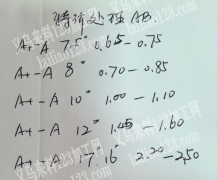 特价处理AB.
A+-A 7.5" 0.65-0.75
A+-A 8" 0.70-0.85
A+-A 10" 1.00-1.10
A+-A 12" 1.45-1.60
A+-A 16" 2.20-2.50